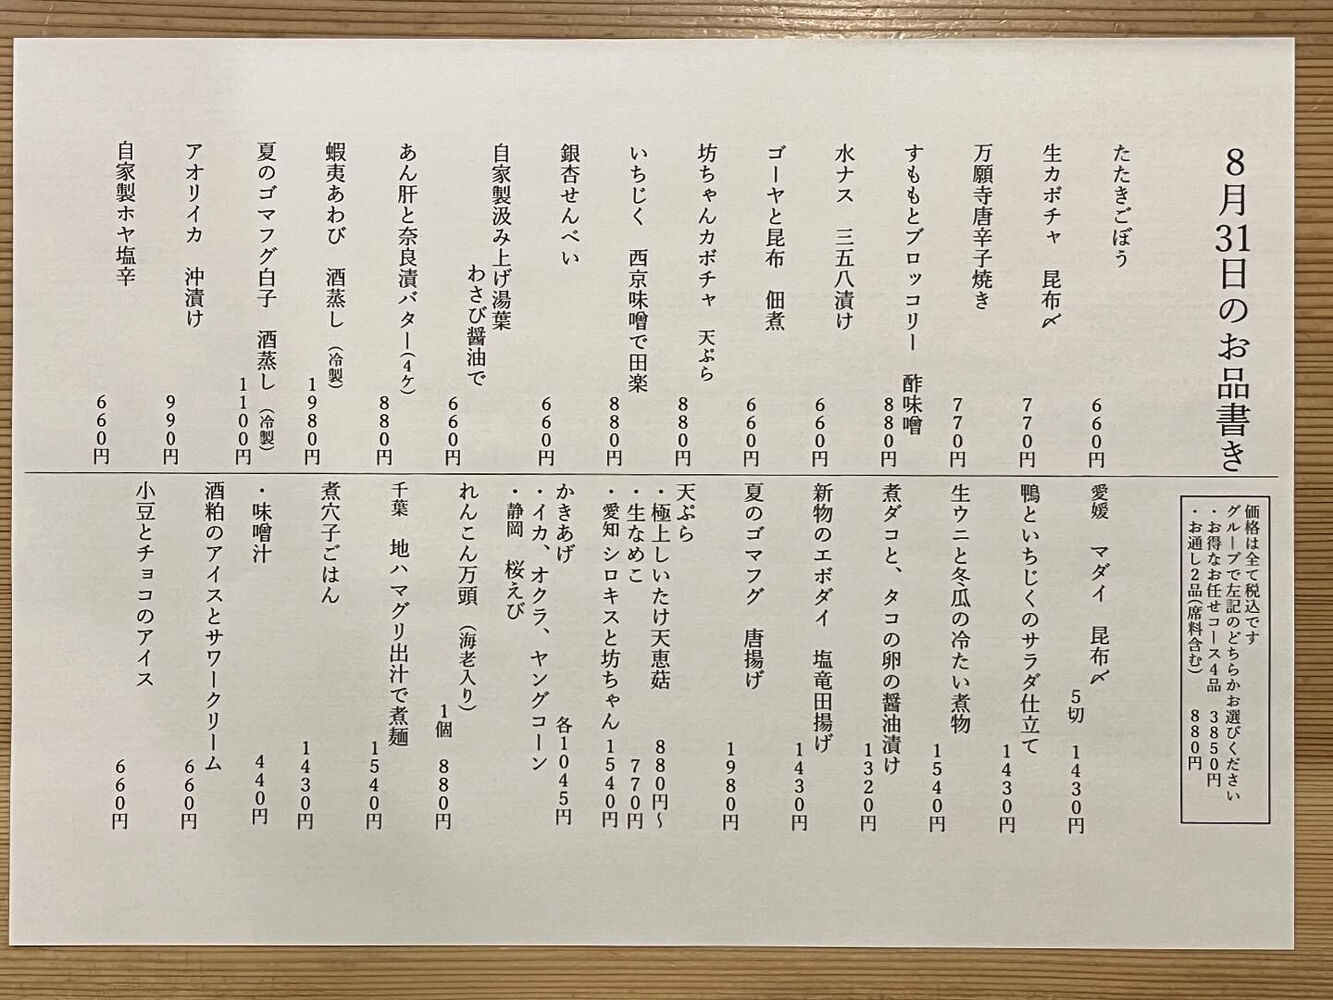 8月31日のお品書き
たたきごぼう
660円
生カボチャ 昆布〆
770円
万願寺唐辛子焼き
770円
すももとブロッコリー 酢味噌
880円
水ナス 三五八漬け
660円
ゴーヤと昆布 佃煮
660円
坊ちゃんカボチャ 天ぷら
880円
いちじく 西京味噌で田楽
880円
銀杏せんべい
660円
自家製汲み上げ湯葉
わさび醤油で
660円
あん肝と奈良漬バター(4ケ)
880円
蝦夷あわび 酒蒸し(冷製)
1980円
夏のゴマフグ白子 酒蒸し(冷製)
1100円
アオリイカ 沖漬け
990円
自家製ホヤ塩辛
660円
価格は全て税込です
グループで左記のどちらかお選びください
・お得なお任せコース4品 3850円
・お通し2品(席料含む) 880円
愛媛 マダイ 昆布〆
5切 1430円
鴨といちじくのサラダ仕立て
1430円
生ウニと冬瓜の冷たい煮物
1540円
煮ダコと、タコの卵の醤油漬け
1320円
新物のエボダイ 塩竜田揚げ
1430円
夏のゴマフグ 唐揚げ
1980円
天ぷら
・極上しいたけ天恵菇 880円〜
・生なめこ 770円
・愛知 シロキスと坊ちゃん 1540円
かきあげ 各1045円
・イカ、オクラ、ヤングコーン
・静岡 桜えび
れんこん万頭(海老入り)
1個 880円
千葉 地ハマグリ出汁で煮麺
1540円
煮穴子ごはん
1430円
・味噌汁 440円
酒粕のアイスとサワークリーム
660円
小豆とチョコのアイス
660円